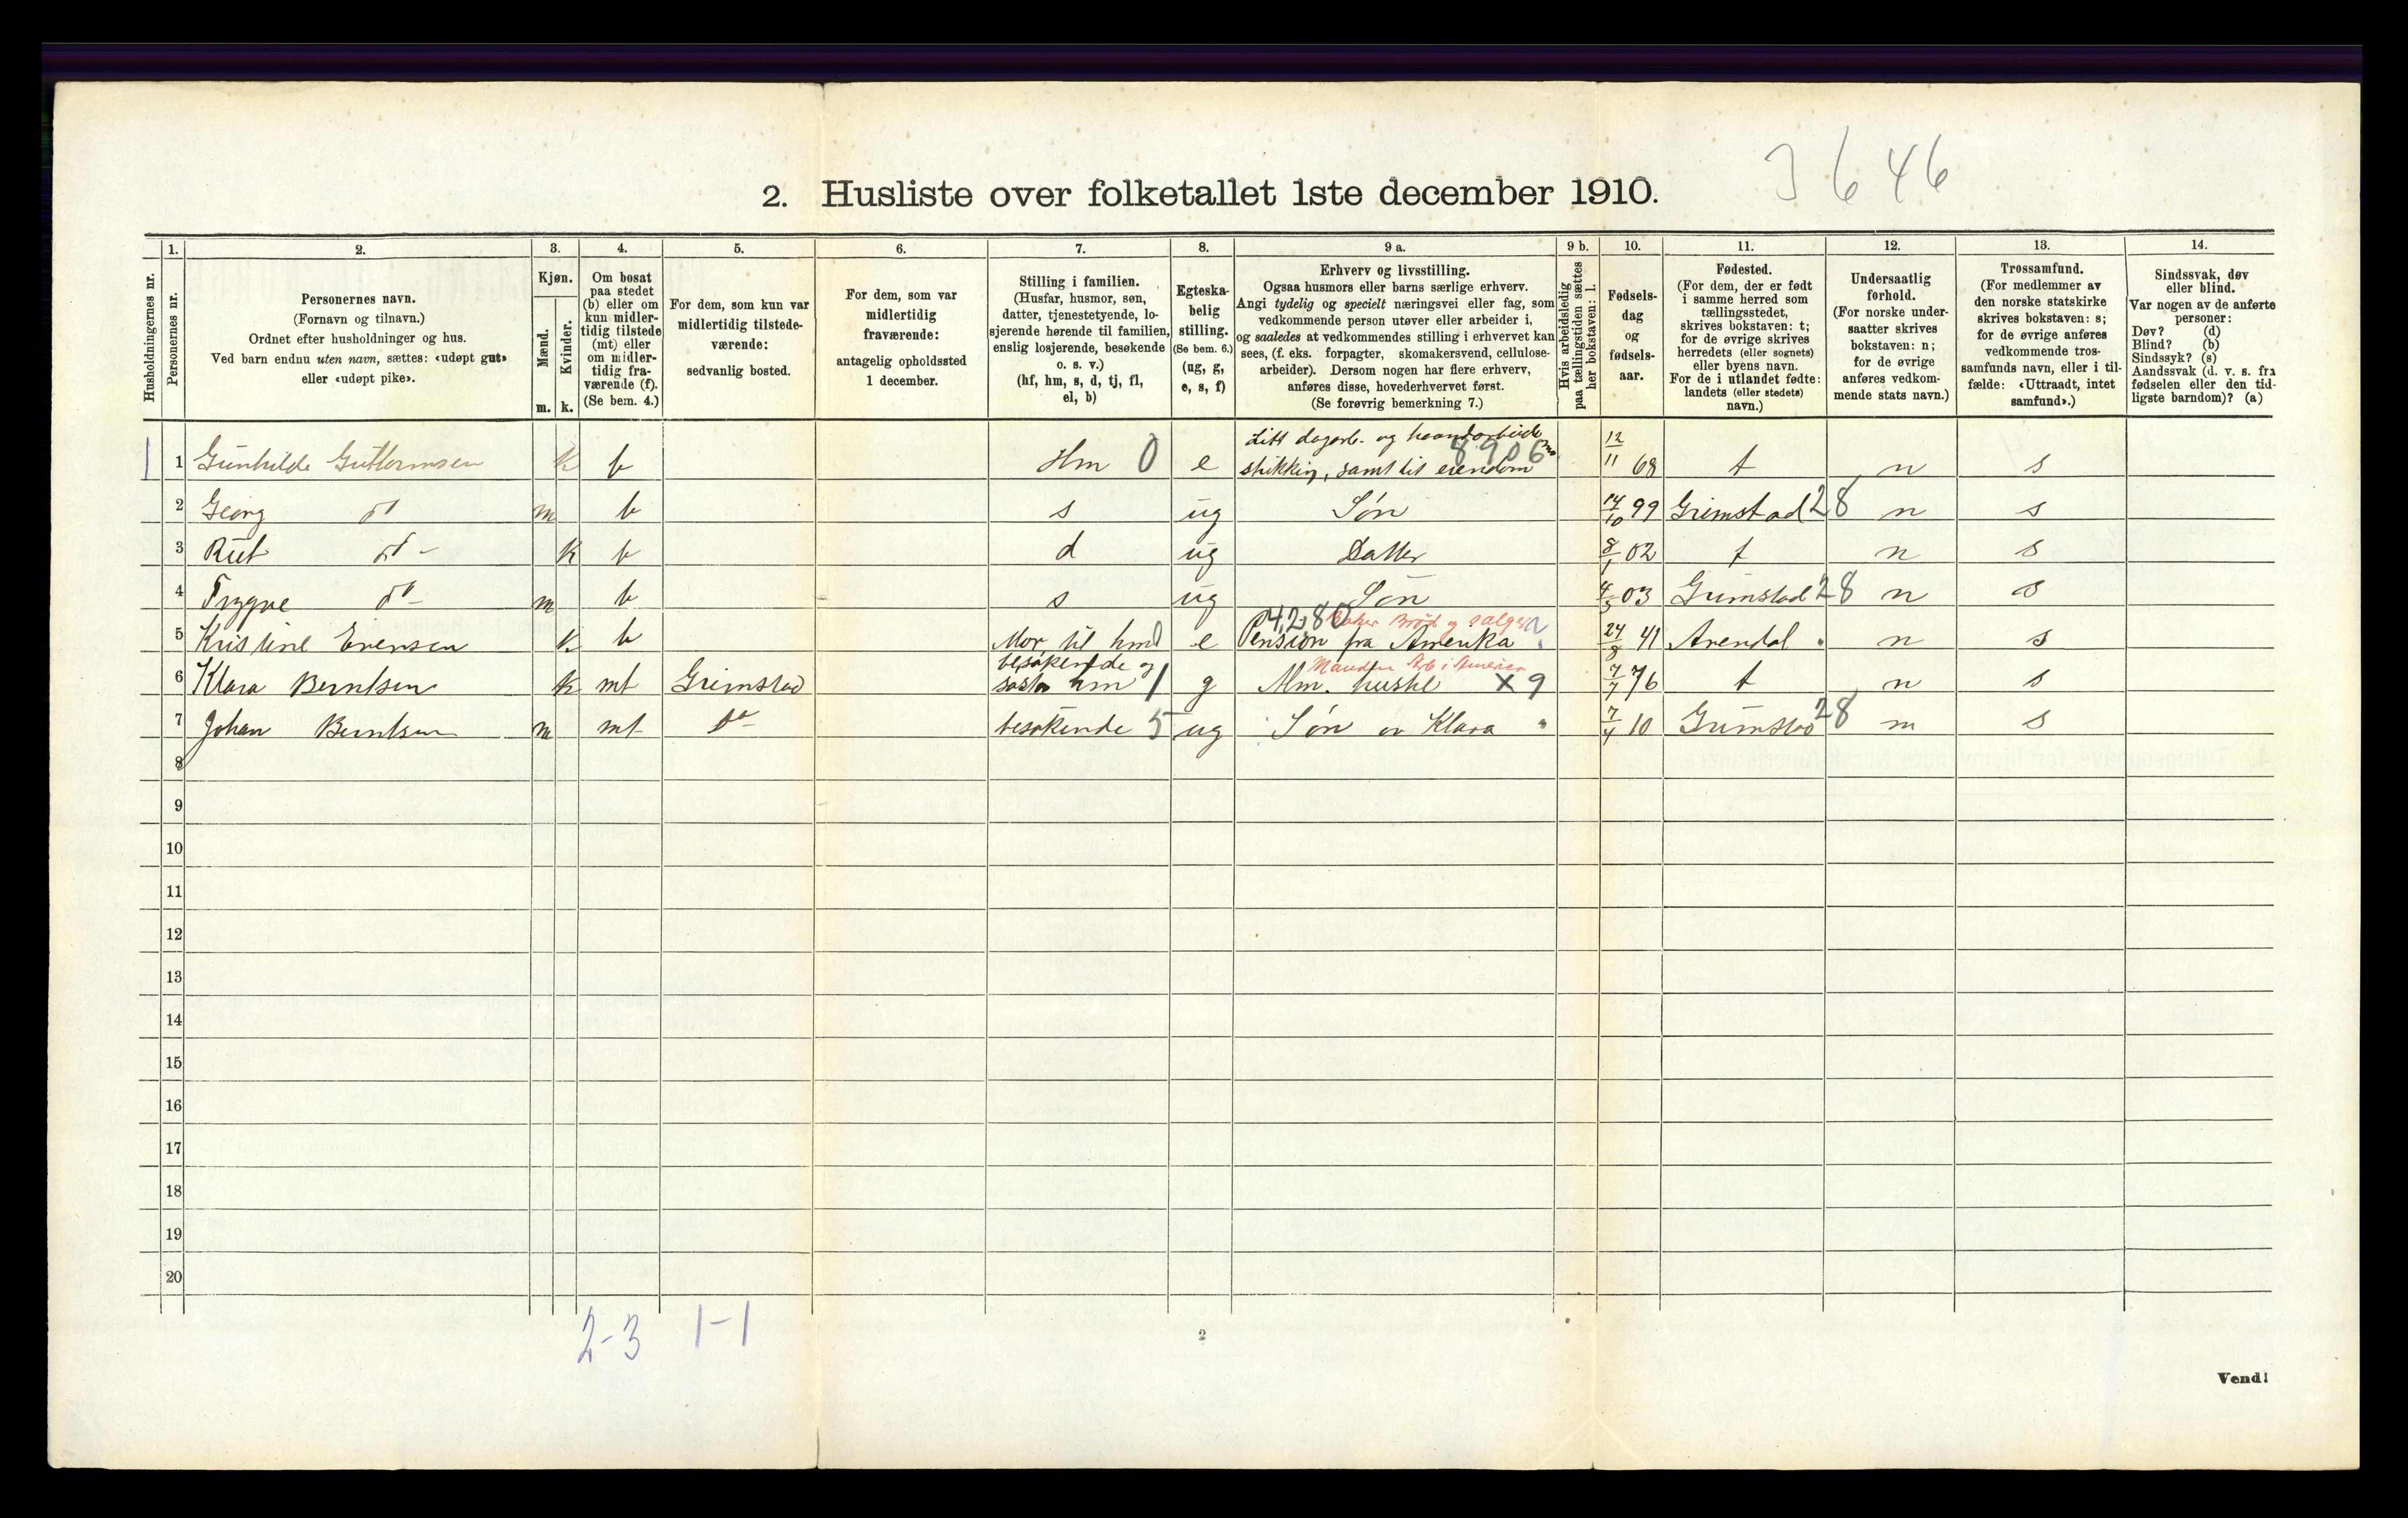 3646
2. Husliste over folketallet 1ste december 1910.
Husholdningernes nr.
1.
Personernes nr.
2.
Personernes navn.
(Fornavn og tilnavn.)
Ordnet efter husholdninger og hus.
Ved barn endnu uten navn, sættes: «udøpt gut»
eller «udøpt pike».
3.
Kjøn.
Mænd.
Kvinder.
m. k.
4.
Om bosat
paa stedet
(b) eller om
kun midler-
tidig tilstede
(mt) eller
om midler-
tidig fra-
værende (f).
(Se bem. 4.)
5.
For dem, som kun var
midlertidig tilstede-
værende:
sedvanlig bosted.
6.
For dem, som var
midlertidig
fraværende:
antagelig opholdssted
1 december.
7.
Stilling i familien.
(Husfar, husmor, søn,
datter, tjenestetyende, lo-
sjerende hørende til familien,
enslig losjerende, besøkende
o. s. v.)
(hf, hm, s, d, tj, fl,
el, b)
8.
Egteska-
belig
stilling.
(Se bem. 6.)
(ug, g,
e, s, f)
9 a.
Erhverv og livsstilling.
Ogsaa husmors eller barns særlige erhverv.
Angi tydelig og specielt næringsvei eller fag, som
vedkommende person utøver eller arbeider i,
og saaledes at vedkommendes stilling i erhvervet kan
sees, (f. eks. forpagter, skomakersvend, cellulose-
arbeider). Dersom nogen har flere erhverv,
anføres disse, hovederhvervet først.
(Se forøvrig bemerkning 7.)
9 b.
Hvis arbeidsledig
paa tællingstiden sættes
her bokstaven: l.
10.
Fødsels-
dag
og
fødsels-
aar.
11.
Fødested.
(For dem, der er født
i samme herred som
tællingsstedet,
skrives bokstaven: t;
for de øvrige skrives
herredets (eller sognets)
eller byens navn.
For de i utlandet fødte:
landets (eller stedets)
navn.)
12.
Undersaatlig
forhold.
(For norske under-
saatter skrives
bokstaven: n;
for de øvrige
anføres vedkom-
mende stats navn.)
13.
Trossamfund.
(For medlemmer av
den norske statskirke
skrives bokstaven: s;
for de øvrige anføres
vedkommende tros-
samfunds navn, eller i til-
fælde: «Uttraadt, intet
samfund».)
14.
Sindssvak, døv
eller blind.
Var nogen av de anførte
personer:
Døv? (d)
Blind? (b)
Sindssyk? (s)
Aandssvak (d. v. s. fra
fødselen eller den tid-
ligste barndom)? (a)
Litt dagarb. og haandarbeide
8906
1 1 Gunhilde Guttormsen k b Hm 0 e strikking, samt lit eiendom 12/11 68 t n s
2 Georg do m b s ug Søn 14/10 99 Grimstad 28 n s
3 Rut do - k b d ug Datter 8/1 02 t n s
4 Trygve do - m b s ug Søn 4/5 03 Grimstad 28 n s
4280 Baker Brød og salg
5 Kristine Evensen k b Mor til hm e Pension fra Amerika 24/8 41 Arendal n s
besøkende og Manden Arb i America
6 Klara Berntsen k mt Grimstad søster hm 1 g Mm. hustel x 9 7/7 76 t n s
7 Johan Berntsen m mt do - besøkende 5 ug Søn av Klara 7/4 10 Grimstad 28 n s
8
9
10
11
12
13
14
15
16
17
18
19
20
2-3 1-1
2
Vend!